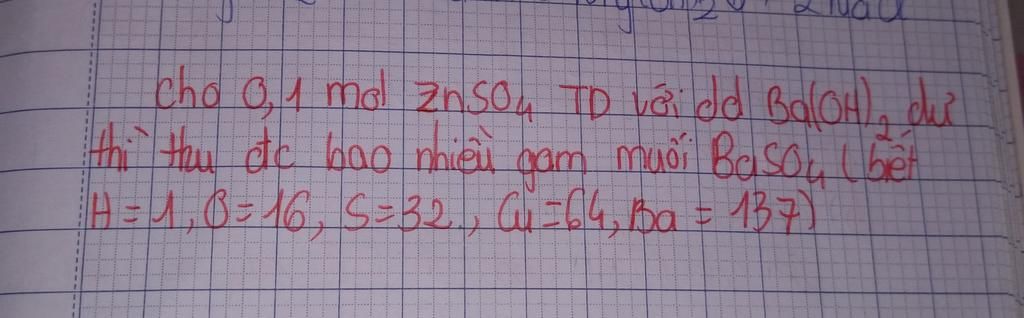 Cho 0,1 mol ZnSO4 TD với dd Ba(OH)2 dư
thì thu đc bao nhiêu gam muối BaSO4 (biết
H = 1, O = 16, S = 32, Cu = 64, Ba = 137)